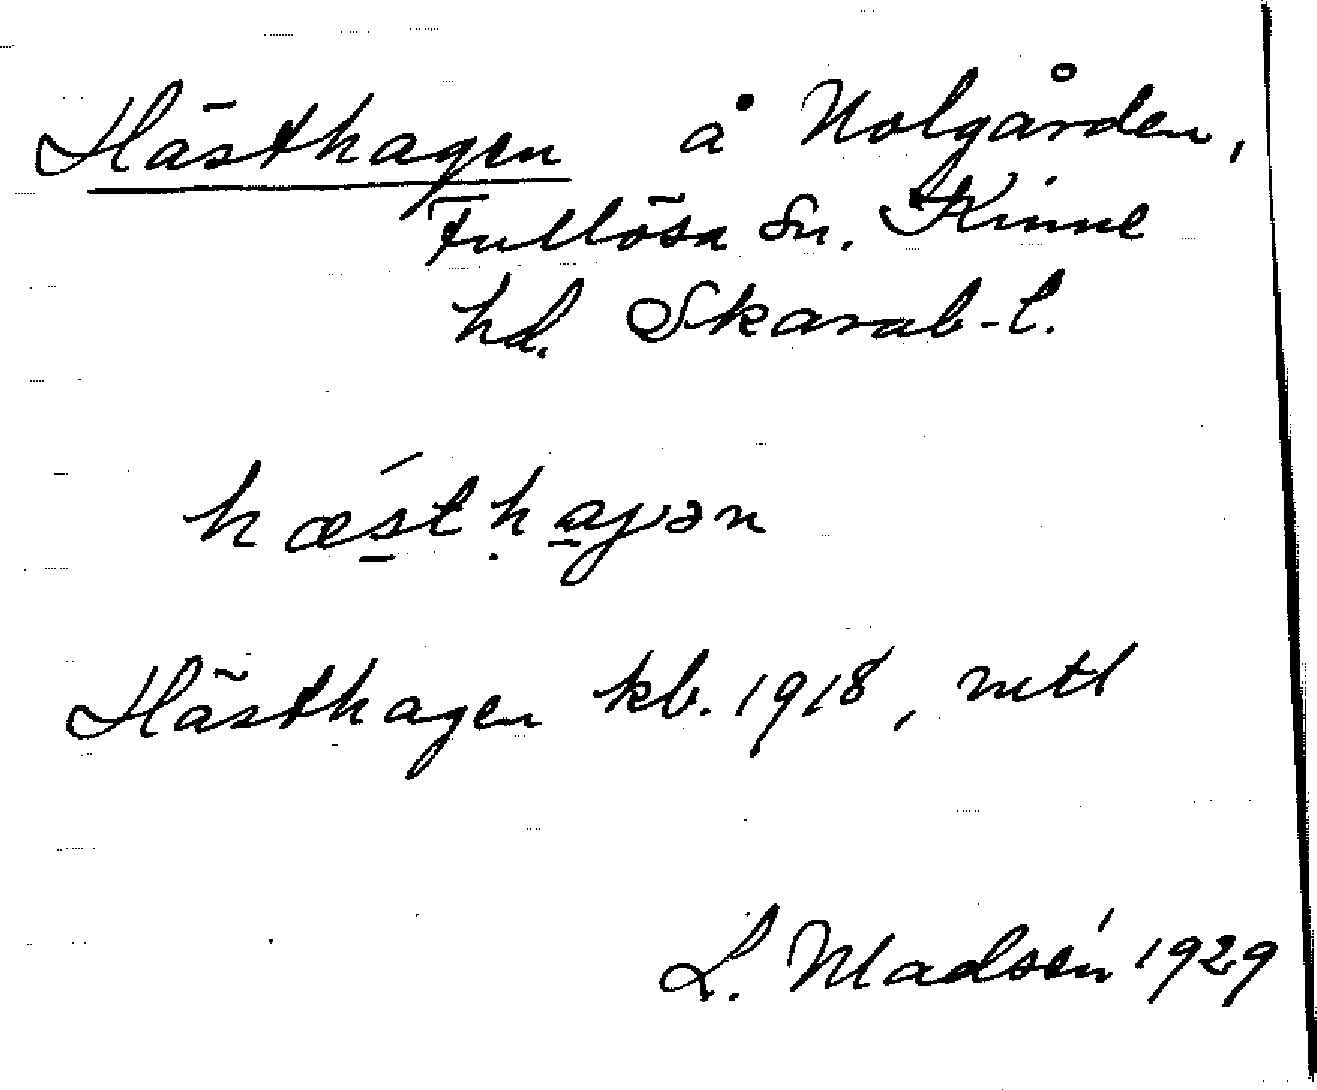 Hästhagen å Nolgården,
Fullösa Sn. Kinne
hd. Skarab-l.
hǽsthaγən
Hästhagen kb. 1918, mtl
L. Madsén 1929